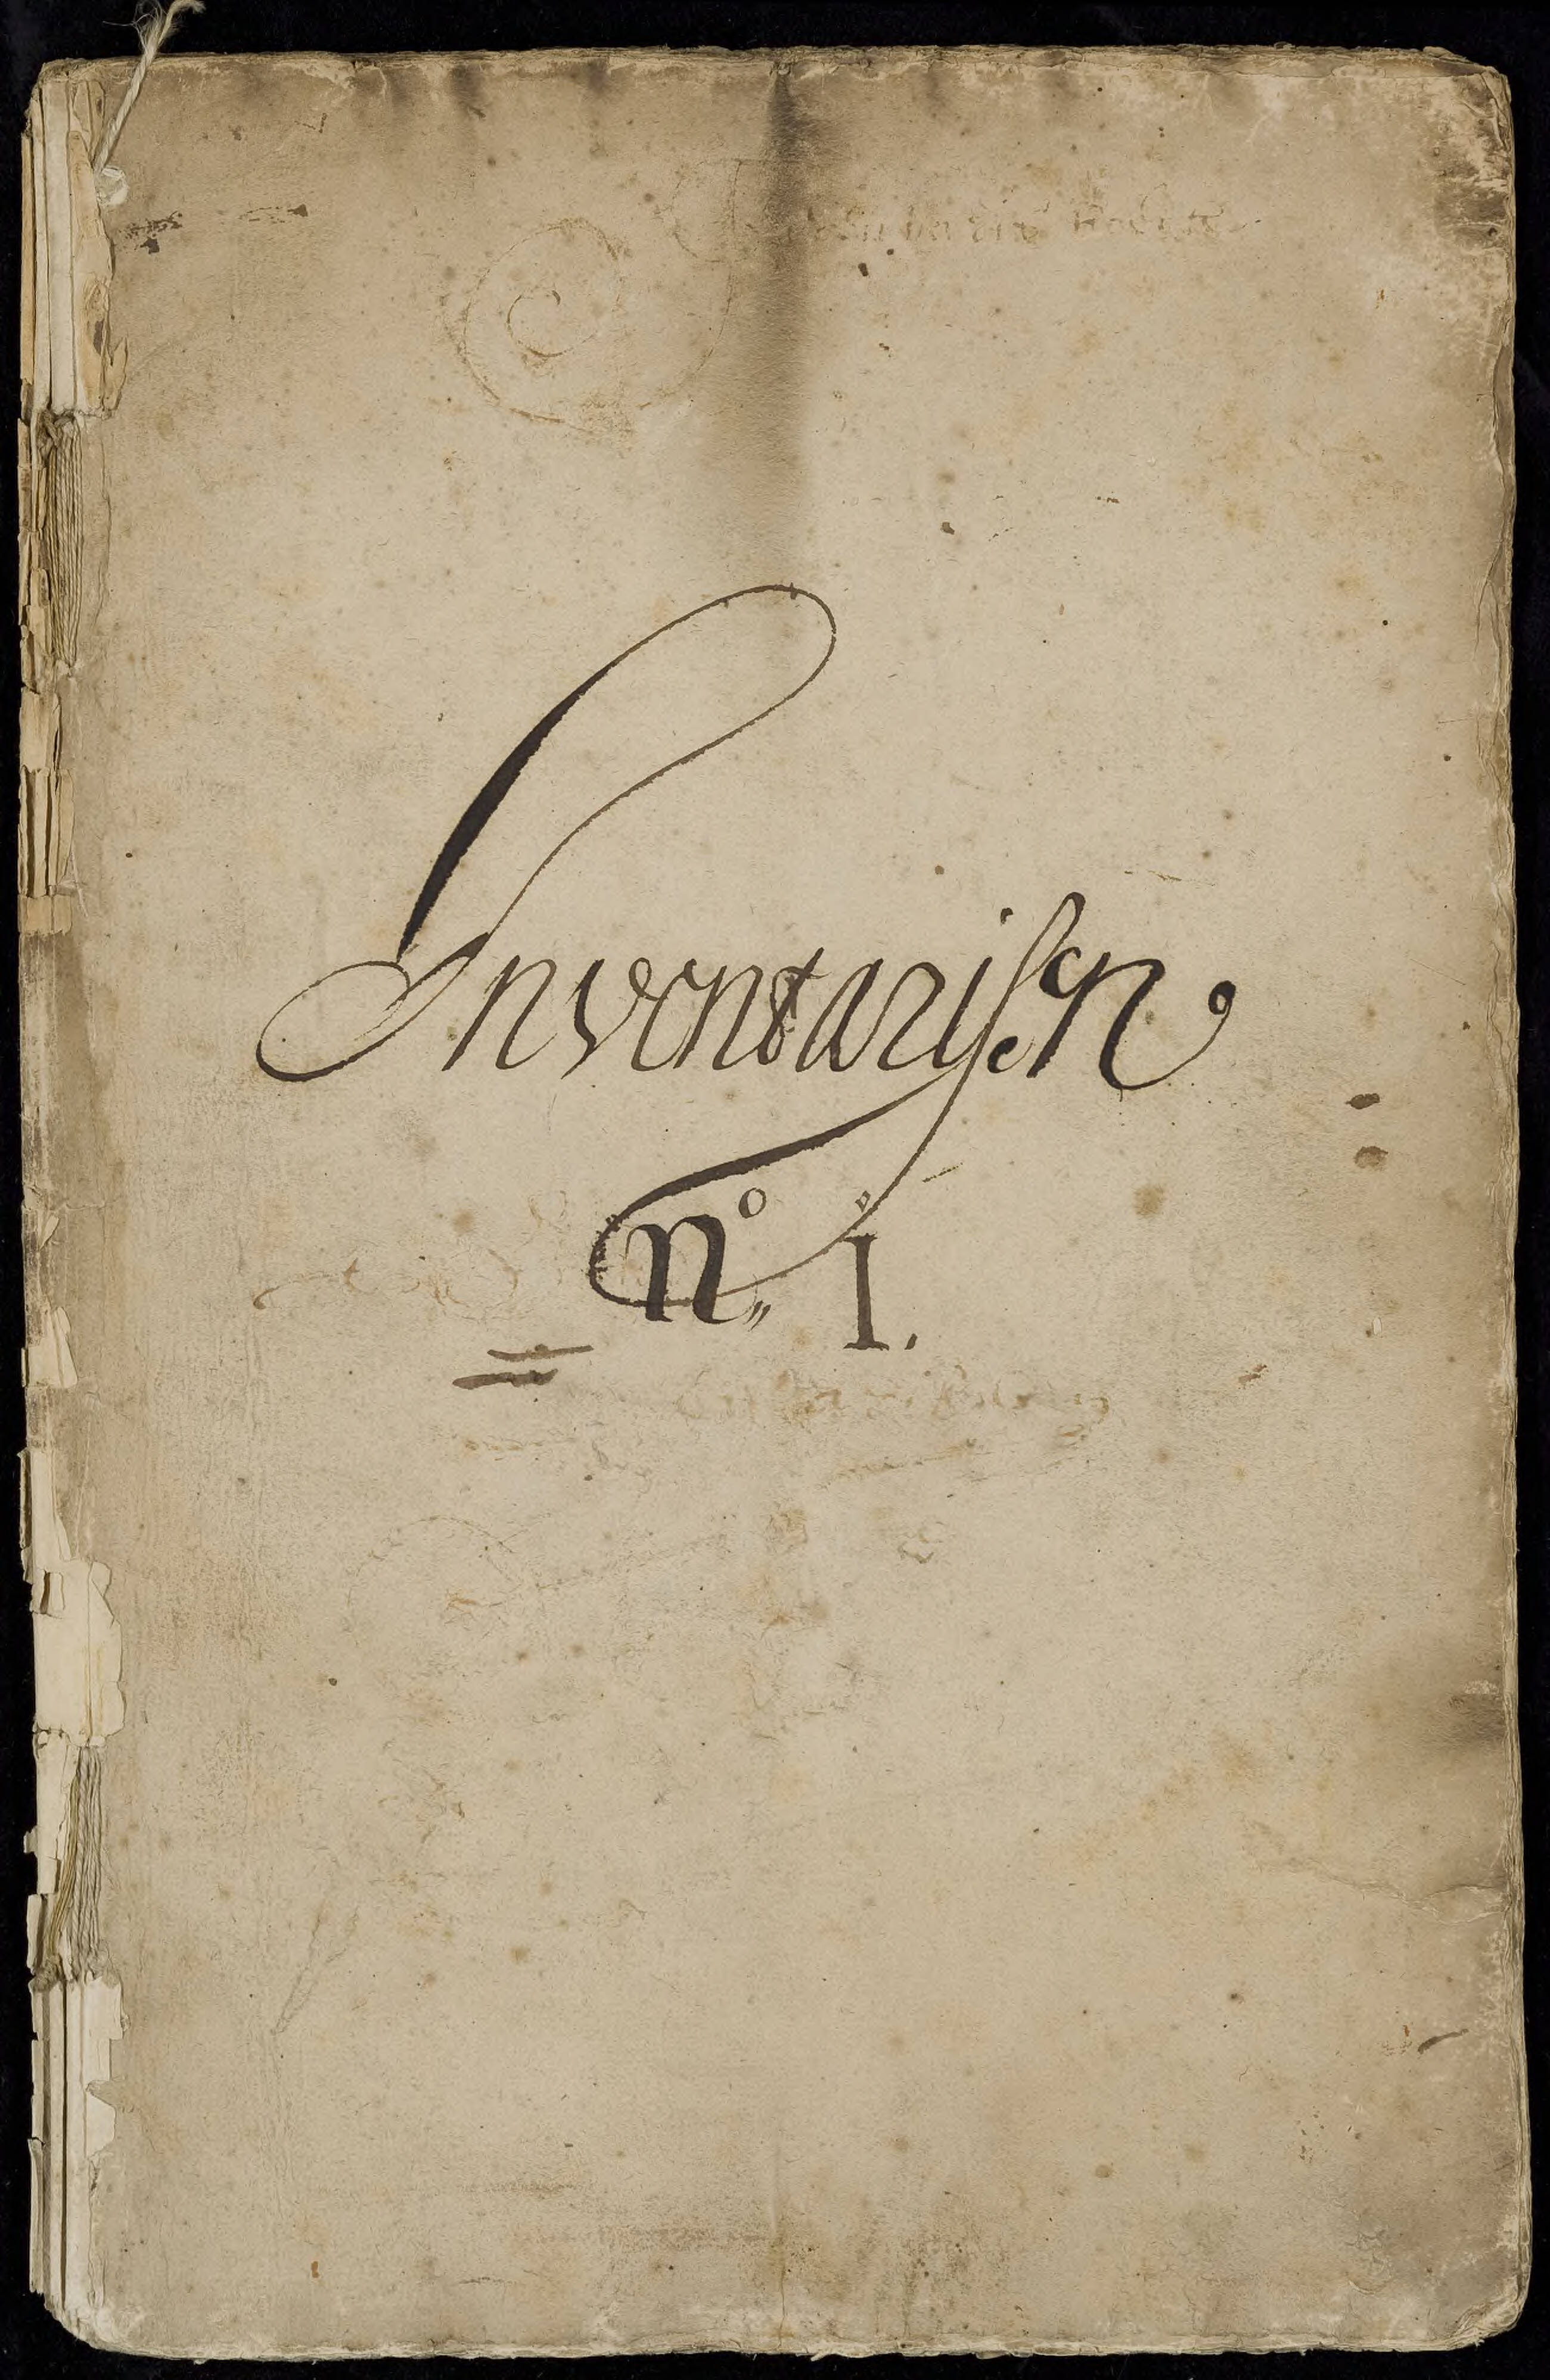 Inventarisen
No,, 1.